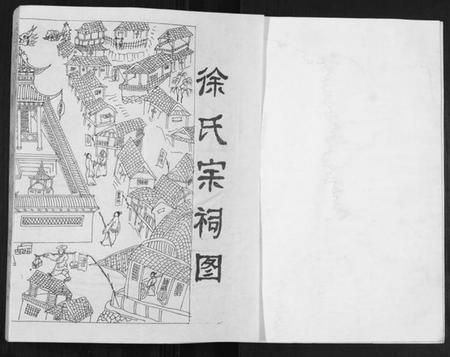 徐氏宗祠图